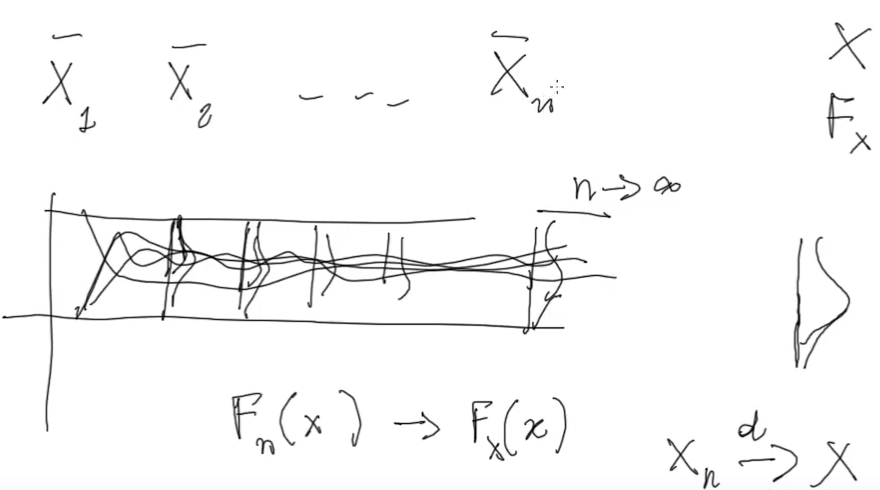 X̄₁ X̄₂ - - - X̄ₙ
X
Fₓ
n → ∞
Fₙ(x) → Fₓ(x)
Xₙ →ᵈ X